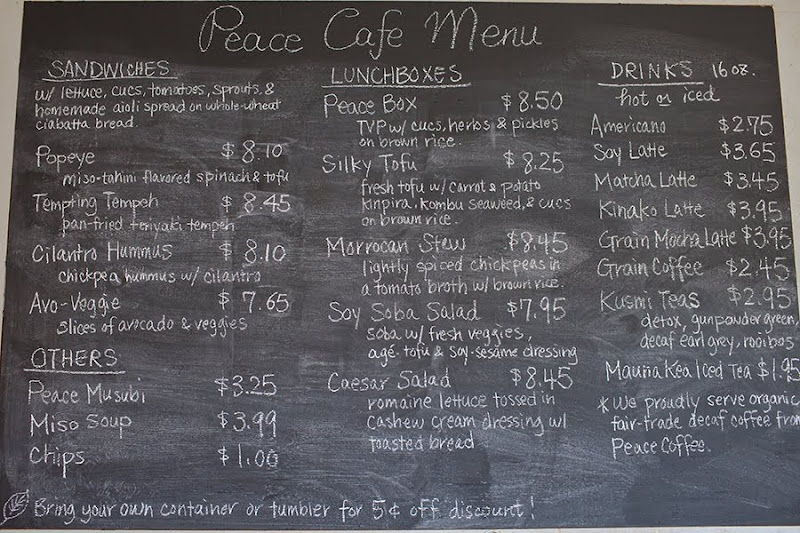 Peace Cafe Menu
SANDWICHES
w/ lettuce, cucs, tomatoes, sprouts, &
homemade aioli spread on whole-wheat
ciabatta bread.
Popeye $8.10
miso-tahini flavored spinach & tofu
Tempting Tempeh $8.45
pan-fried teriyaki tempeh
Cilantro Hummus $8.10
chickpea hummus w/ cilantro
Avo-Veggie $7.65
slices of avocado & veggies
OTHERS
Peace Musubi $3.25
Miso Soup $3.99
Chips $1.00
LUNCHBOXES
Peace Box $8.50
TVP w/ cucs, herbs & pickles
on brown rice.
Silky Tofu $8.25
fresh tofu w/ carrot & potato
kinpira, kombu seaweed, & cucs
on brown rice.
Morrocan Stew $8.45
lightly spiced chickpeas in
a tomato broth w/ brown rice.
Soy Soba Salad $7.95
soba w/ fresh veggies,
age-tofu & soy-sesame dressing
Caesar Salad $8.45
romaine lettuce tossed in
cashew cream dressing w/
toasted bread
DRINKS 16 oz.
hot or iced
Americano $2.75
Soy Latte $3.65
Matcha Latte $3.45
Kinako Latte $3.95
Grain Mocha Latte $3.95
Grain Coffee $2.45
Kusmi Teas $2.95
detox, gunpowder green,
decaf earl grey, rooibos
Mauna Kea Iced Tea $1.95
* We proudly serve organic
fair-trade decaf coffee from
Peace Coffee.
Bring your own container or tumbler for 5¢ off discount!